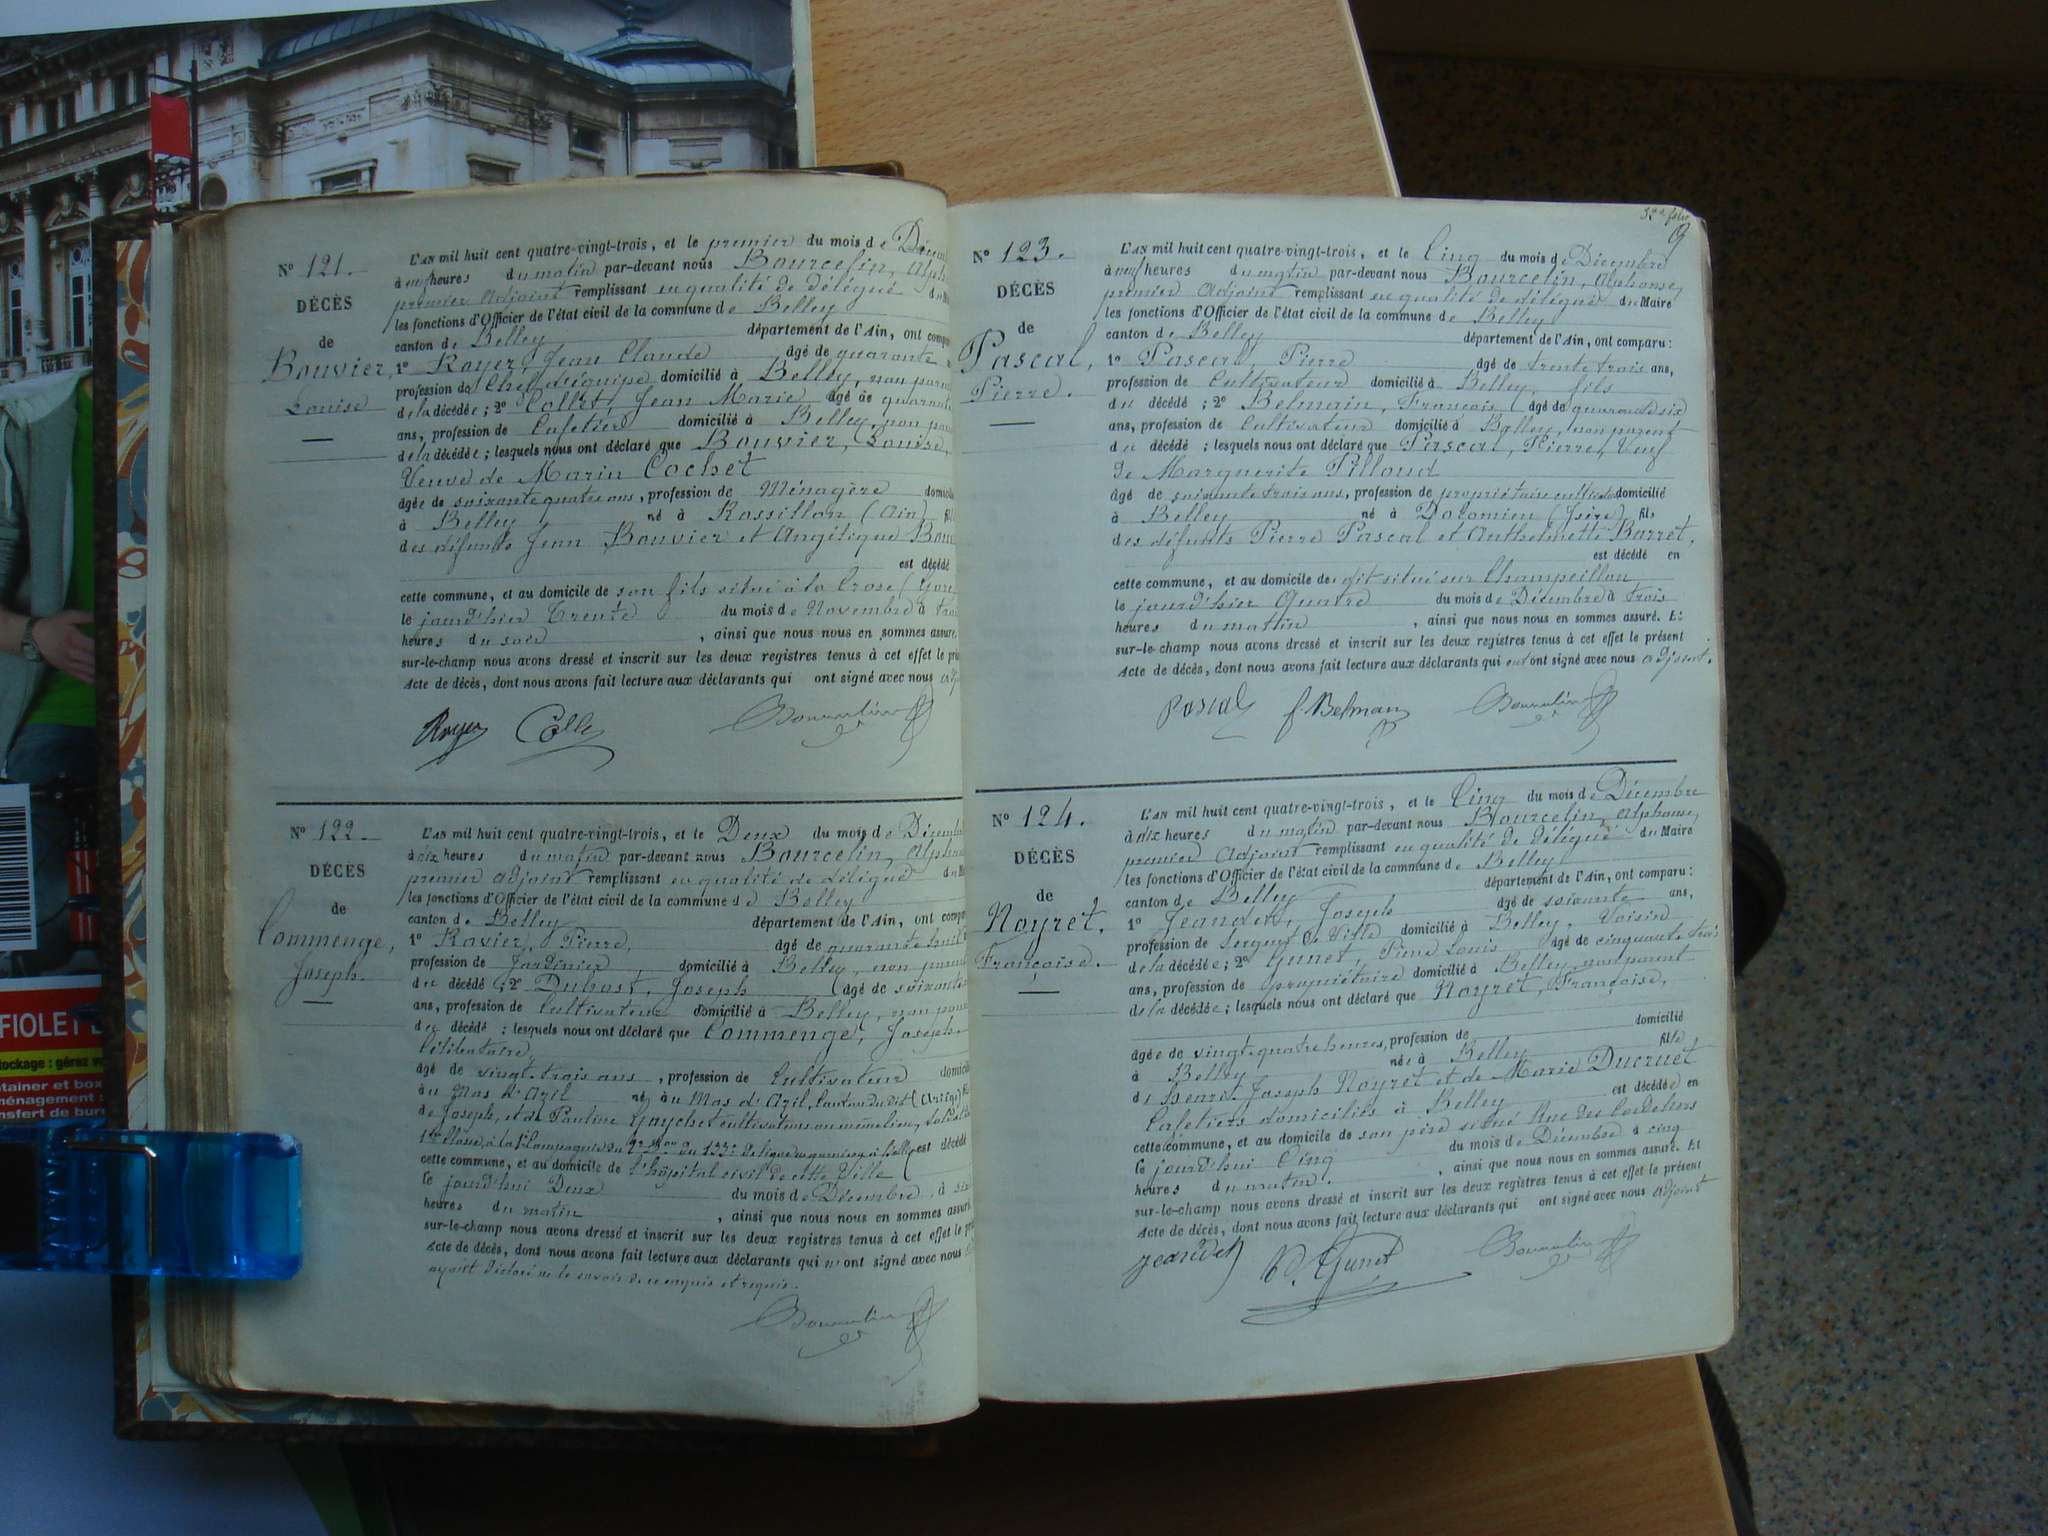 Nº 121.
DÉCÈS
de
Bouvier,
Louise
L'AN mil huit cent quatre-vingt-trois, et le premier du mois de
à neuf heures du matin par-devant nous Bourcelin,
premier Adjoint remplissant en qualité de délégué du
les fonctions d'Officier de l'état civil de la commune de Belley
canton de Belley département de l'Ain, ont
1º Royer, Jean Claude âgé de quarante
profession de Chef d'équipe domicilié à Belley, non
de la décédée; 2º Collet, Jean Marie âgé de
ans, profession de Cafetier domicilié à Belley, non
de la décédée; lesquels nous ont déclaré que Bouvier, Louise,
Veuve de Marin Cochet
âgée de soixante quatre ans, profession de Ménagère
à Belley né à Rossillon (Ain)
des défunts Jean Bouvier et Angélique
est décédé
cette commune, et au domicile de son fils situé à la
le jourd'hier Trente du mois de Novembre à
heures du soir, ainsi que nous nous en sommes assuré.
sur-le-champ nous avons dressé et inscrit sur les deux registres tenus à cet effet le
Acte de décès, dont nous avons fait lecture aux déclarants qui ont signé avec nous
Royer
Nº 122.
DÉCÈS
de
Commenge,
Joseph.
L'AN mil huit cent quatre-vingt-trois, et le Deux du mois de
à dix heures du matin par-devant nous Bourcelin,
premier adjoint remplissant en qualité de délégué
les fonctions d'Officier de l'état civil de la commune de Belley
canton de Belley département de l'Ain, ont
1º Ravier, Pierre, âgé de quarante huit
profession de Jardinier domicilié à Belley, non
du décédé; 2º Dubost, Joseph âgé de
ans, profession de Cultivateur domicilié à Belley, non
du décédé; lesquels nous ont déclaré que Commenge, Joseph
Célibataire,
âgé de vingt-trois ans, profession de Cultivateur
au Mas d'Azil né au Mas d'Azil, Canton du dit (Ariège)
de Joseph, et de Pauline cultivateurs au même lieu,
est décédé
cette commune, et au domicile de l'hôpital civil de cette Ville
le jourd'hui Deux du mois de Décembre, à
heures du matin, ainsi que nous nous en sommes
sur-le-champ nous avons dressé et inscrit sur les deux registres tenus à cet effet le
Acte de décès, dont nous avons fait lecture aux déclarants qui n'ont signé avec nous
ayant déclaré ne le savoir de ce enquis et requis.
Nº 123.
DÉCÈS
de
Pascal,
Pierre.
L'AN mil huit cent quatre-vingt-trois, et le Cinq du mois de Décembre
à neuf heures du matin par-devant nous Bourcelin, Alphonse,
premier Adjoint remplissant en qualité de délégué du Maire
les fonctions d'Officier de l'état civil de la commune de Belley
canton de Belley département de l'Ain, ont comparu:
1º Pascal, Pierre âgé de trente trois ans,
profession de Cultivateur domicilié à Belley, fils
du décédé; 2º Belmain, François âgé de quarante six
ans, profession de Cultivateur domicilié à Belley, non parent
du décédé; lesquels nous ont déclaré que Pascal, Pierre, Veuf
de Marguerite Pilloud
âgé de soixante trois ans, profession de propriétaire cultivateur domicilié
à Belley né à Dolomieu (Isère) fils
des défunts Pierre Pascal et Anthelmette Barret,
est décédé en
cette commune, et au domicile de situé sur Champeillon
le jourd'hier Quatre du mois de Décembre à trois
heures du matin, ainsi que nous nous en sommes assuré. Et
sur-le-champ nous avons dressé et inscrit sur les deux registres tenus à cet effet le présent
Acte de décès, dont nous avons fait lecture aux déclarants qui ont signé avec nous adjoint.
Pascal f. Belman
Nº 124.
DÉCÈS
de
Noyret,
Françoise.
L'AN mil huit cent quatre-vingt-trois, et le Cinq du mois de Décembre
à dix heures du matin par-devant nous Bourcelin, Alphonse,
premier Adjoint remplissant en qualité de délégué du Maire
les fonctions d'Officier de l'état civil de la commune de Belley
canton de Belley département de l'Ain, ont comparu:
1º Jeandet, Joseph âgé de soixante ans,
profession de Sergent de Ville domicilié à Belley, Voisin
de la décédée; 2º Gunet, Pierre Louis âgé de cinquante trois
ans, profession de propriétaire domicilié à Belley, non parent
de la décédée; lesquels nous ont déclaré que Noyret, Françoise,
âgée de vingt-quatre heures, profession de domicilié
à Belley née à Belley fille
de Henri Joseph Noyret et de Marie Ducruet
Cafetiers domiciliés à Belley est décédée en
cette commune, et au domicile de son père situé Rue des Cordeliers
le jourd'hui Cinq du mois de Décembre à cinq
heures du matin, ainsi que nous nous en sommes assuré. Et
sur-le-champ nous avons dressé et inscrit sur les deux registres tenus à cet effet le présent
Acte de décès, dont nous avons fait lecture aux déclarants qui ont signé avec nous adjoint
Jeandet Gunet